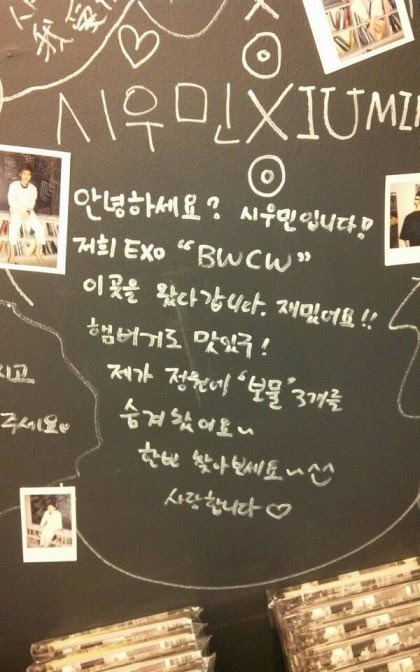 시우민 XIUMIN
안녕하세요? 시우민입니다!
저희 EXO "BWCW"
이곳을 왔다갑니다. 재밌어요!!
햄버거도 맛있구!
제가 정원에 "보물" 3개를
숨겨놨어요~
한번 찾아보세요~^^
사랑합니다♡
주세요